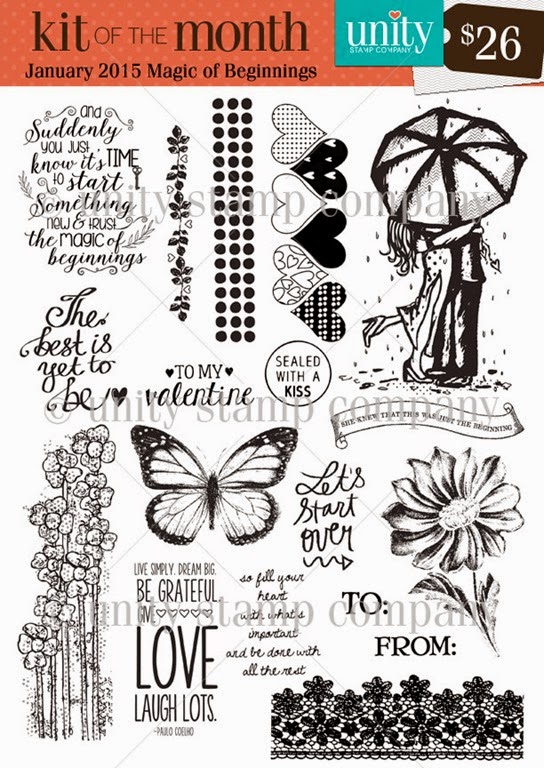 kit OF THE month
January 2015 Magic of Beginnings
unity
STAMP COMPANY
$26
and
Suddenly
you just
know it's TIME
to start
Something
new & trust
the magic of
beginnings
© unity stamp company
The
best is
yet to
be
TO MY
valentine
SEALED
WITH A
KISS
SHE KNEW THAT THIS WAS JUST THE BEGINNING
© unity stamp company
Let's
start
over
LIVE SIMPLY. DREAM BIG.
BE GRATEFUL
GIVE
LOVE
LAUGH LOTS.
~PAULO COELHO
so fill your
heart
with what's
important
and be done with
all the rest
TO:
FROM:
© unity stamp company